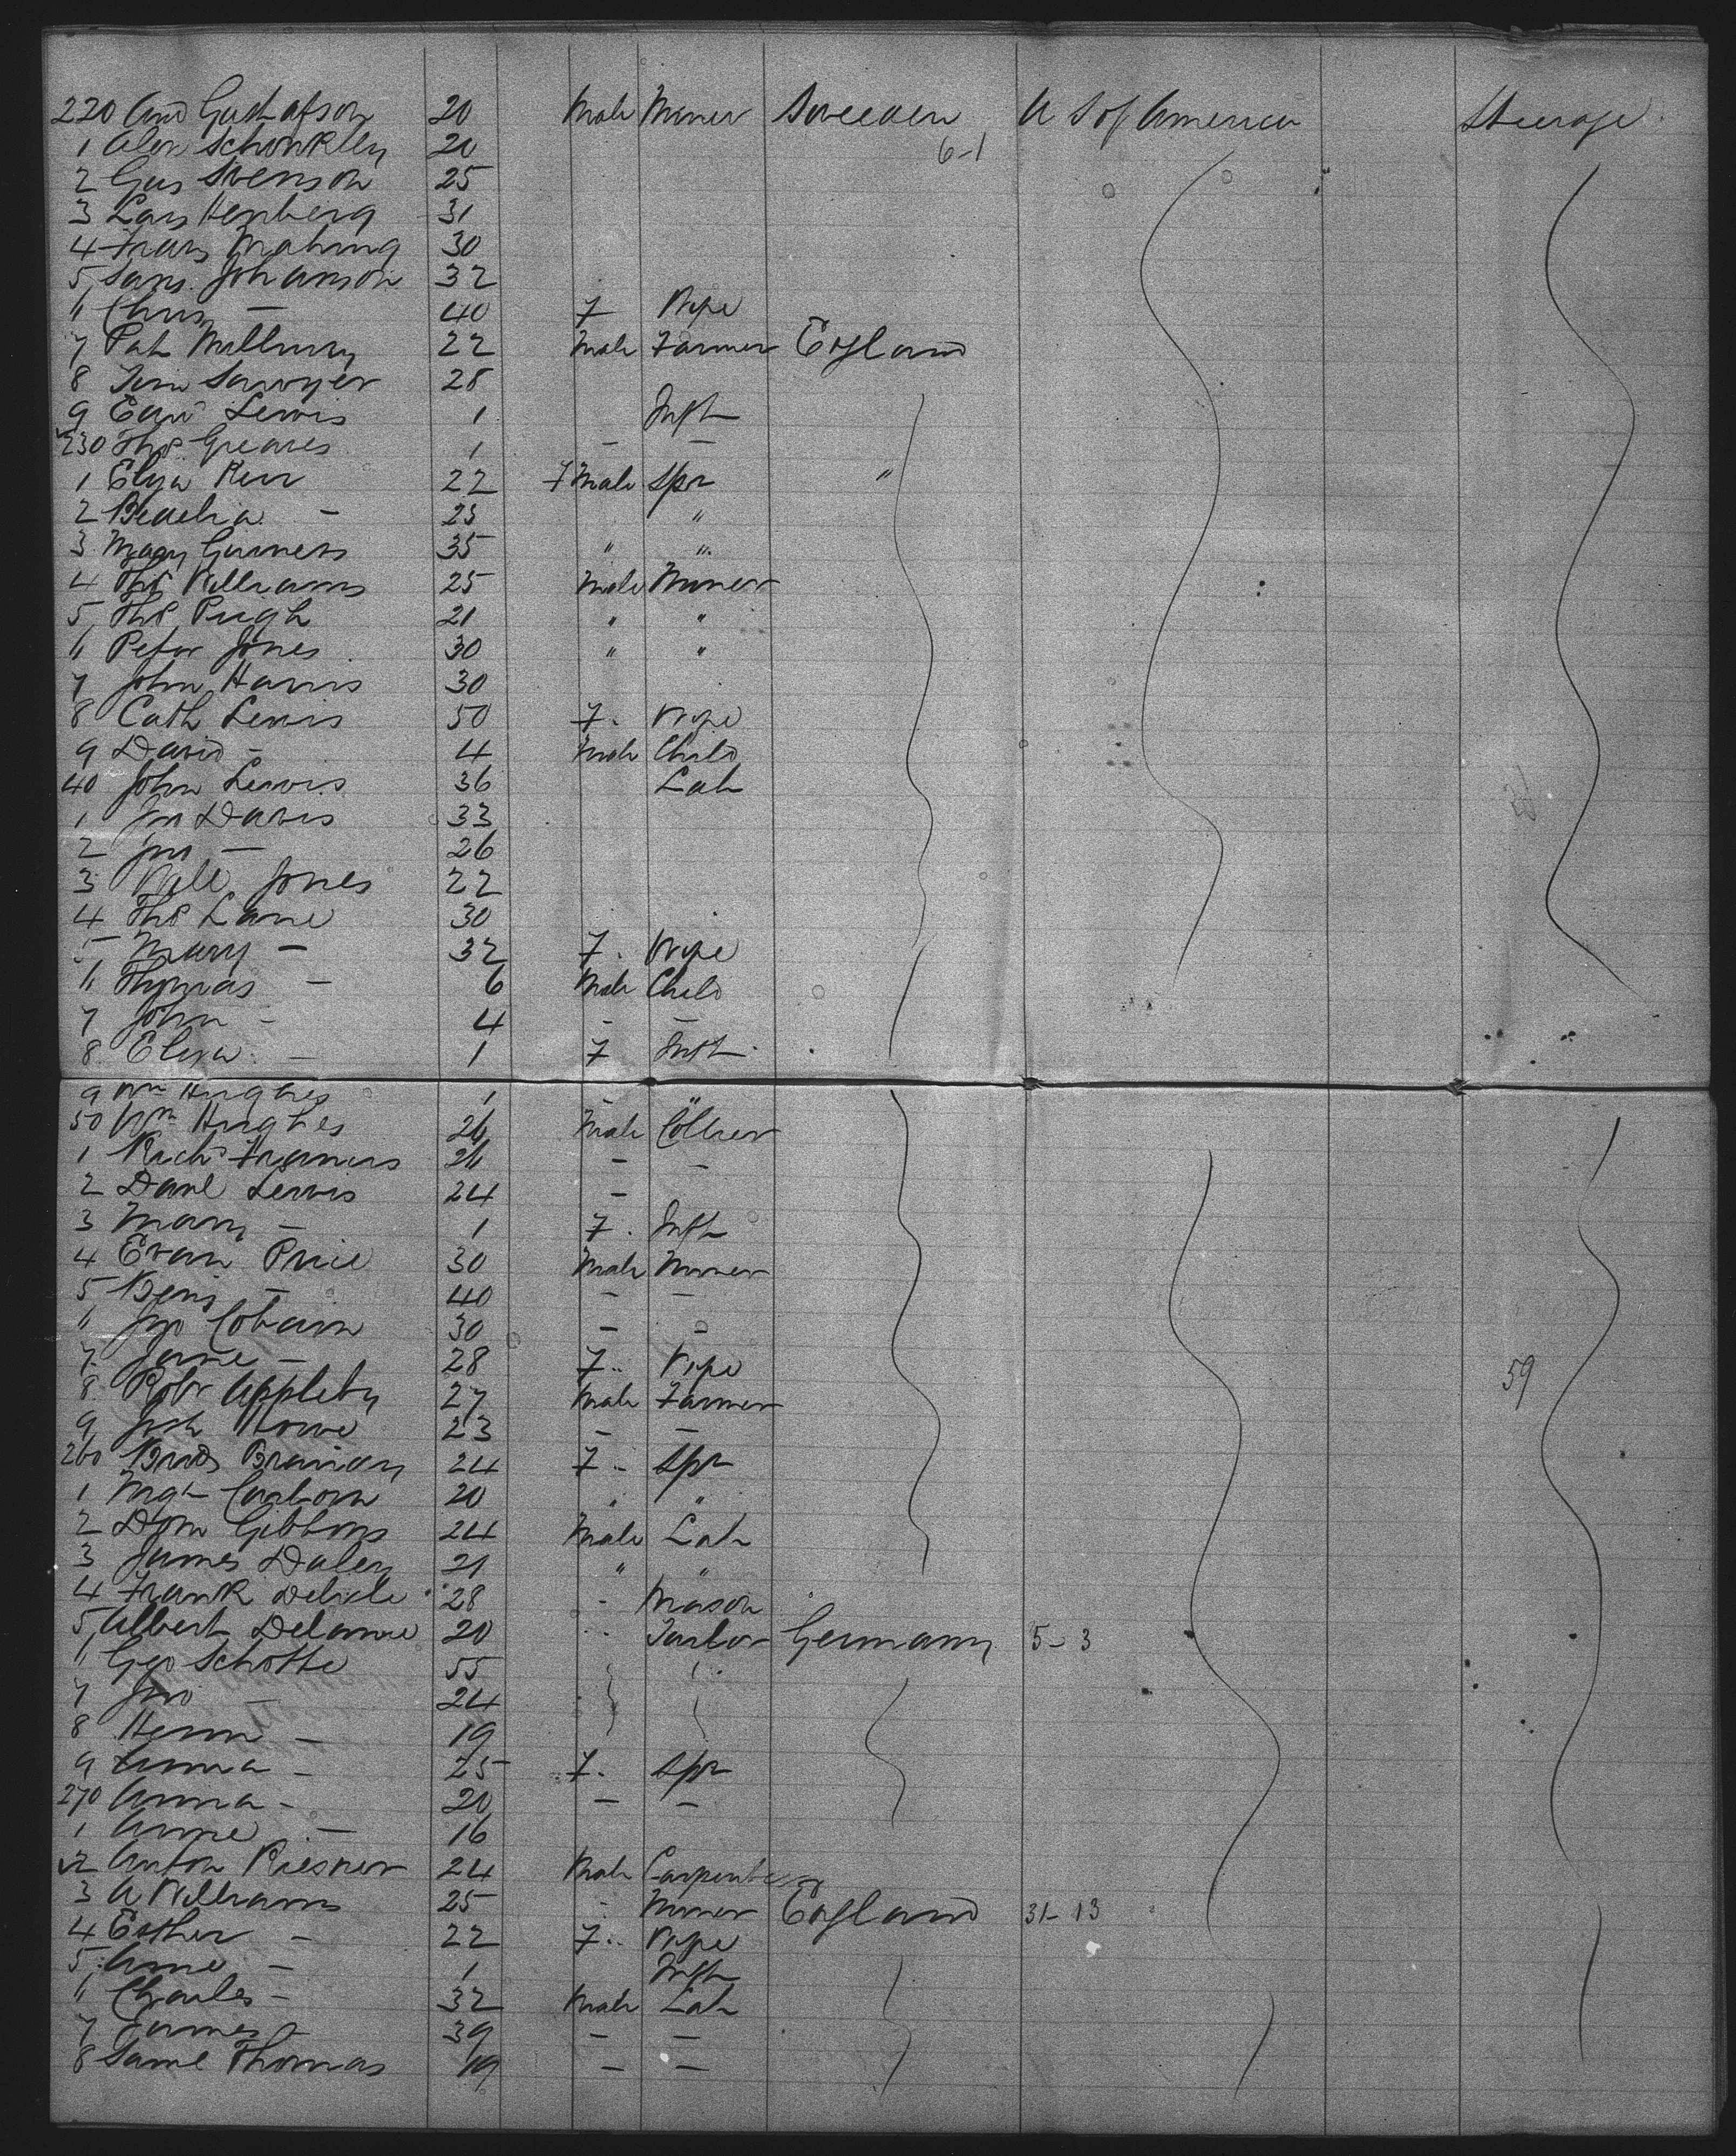 220 And Gustafson 20 Male Miner Sweeden U S of America Steerage
1 Alex 20 6-1
2 Gus Svenson 25
3 Lars 31
4 Frans 30
5 Johanson 32
" — 40 F Wife
7 Pat 22 Male Farmer England
8 Sawyer 28
9 Lewis 1 Inft
230 Thos Greaves 1 — —
1 Eliza Kerr 22 F Male Spr "
2 Bedelia — 23 "
3 Mary 35 " "
4 Thos Williams 25 Male Miner
5 Thos Pugh 21 " "
" Peter Jones 30 " "
7 John Harris 30
8 Cath Lewis 50 F. Wife
9 David — 4 Male Child
40 John Lewis 36 Lab
1 Jno Davis 33
2 Jno — 26
3 Will Jones 22
4 Thos Lane 30
5 Mary — 32 F. Wife
" Thomas — 6 Male Child
7 John — 4 — —
8 Eliza — 1 F Inft
9 Wm Hughes 1 — "
50 Wm Hughes 26 Male Collier
1 Richd Francis 26 — —
2 Danl Lewis 24 —
3 Mary — 1 F. Inft
4 Evan Price 30 Male Miner
5 Benj — 40 — —
" Jno 30 — —
7 Jane — 28 F.. Wife
8 Robt Appleby 27 Male Farmer 59
9 Josh Howe 23 — —
260 24 F.. Spr
1 Mgt 20 " "
2 Dom Gibbons 24 Male Lab
3 James Daley 21 " "
4 Frank 28 - Mason
5 Albert 20 .. Tailor Germany 5-3
" Geo Schotte 55
7 Jno — 24
8 Herm — 19
9 Anna — 25 F. Spr
270 Anna — 20 — —
1 Anne — 16
2 Anton Riesner 24 Male Carpenter
3 A Williams 25 - Miner England 31-13
4 Esther — 22 F.. Wife
5 Anne — 1 Inft
" Charles — 32 Male Lab
7 James — 39 — —
8 Saml Thomas 19 — —